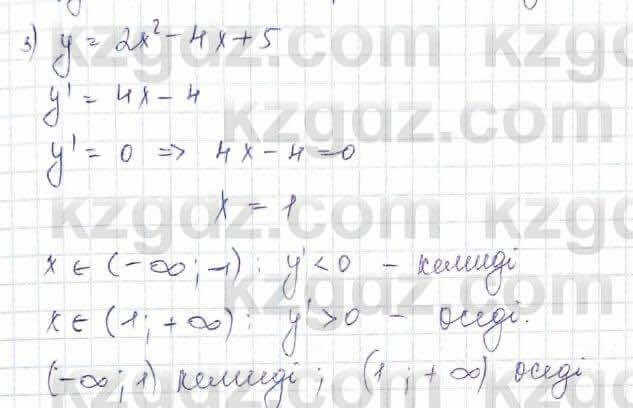 3) y = 2x² - 4x + 5
y' = 4x - 4
y' = 0 => 4x - 4 = 0
x = 1
x ∈ (-∞; -1): y' < 0 - кемиді
x ∈ (1; +∞): y' > 0 - өседі.
(-∞; 1) кемиді; (1; +∞) өседі
kzgdz.com kzgdz.com
kzgdz.com
kzgdz.com
kzgdz.com
kzgdz.com